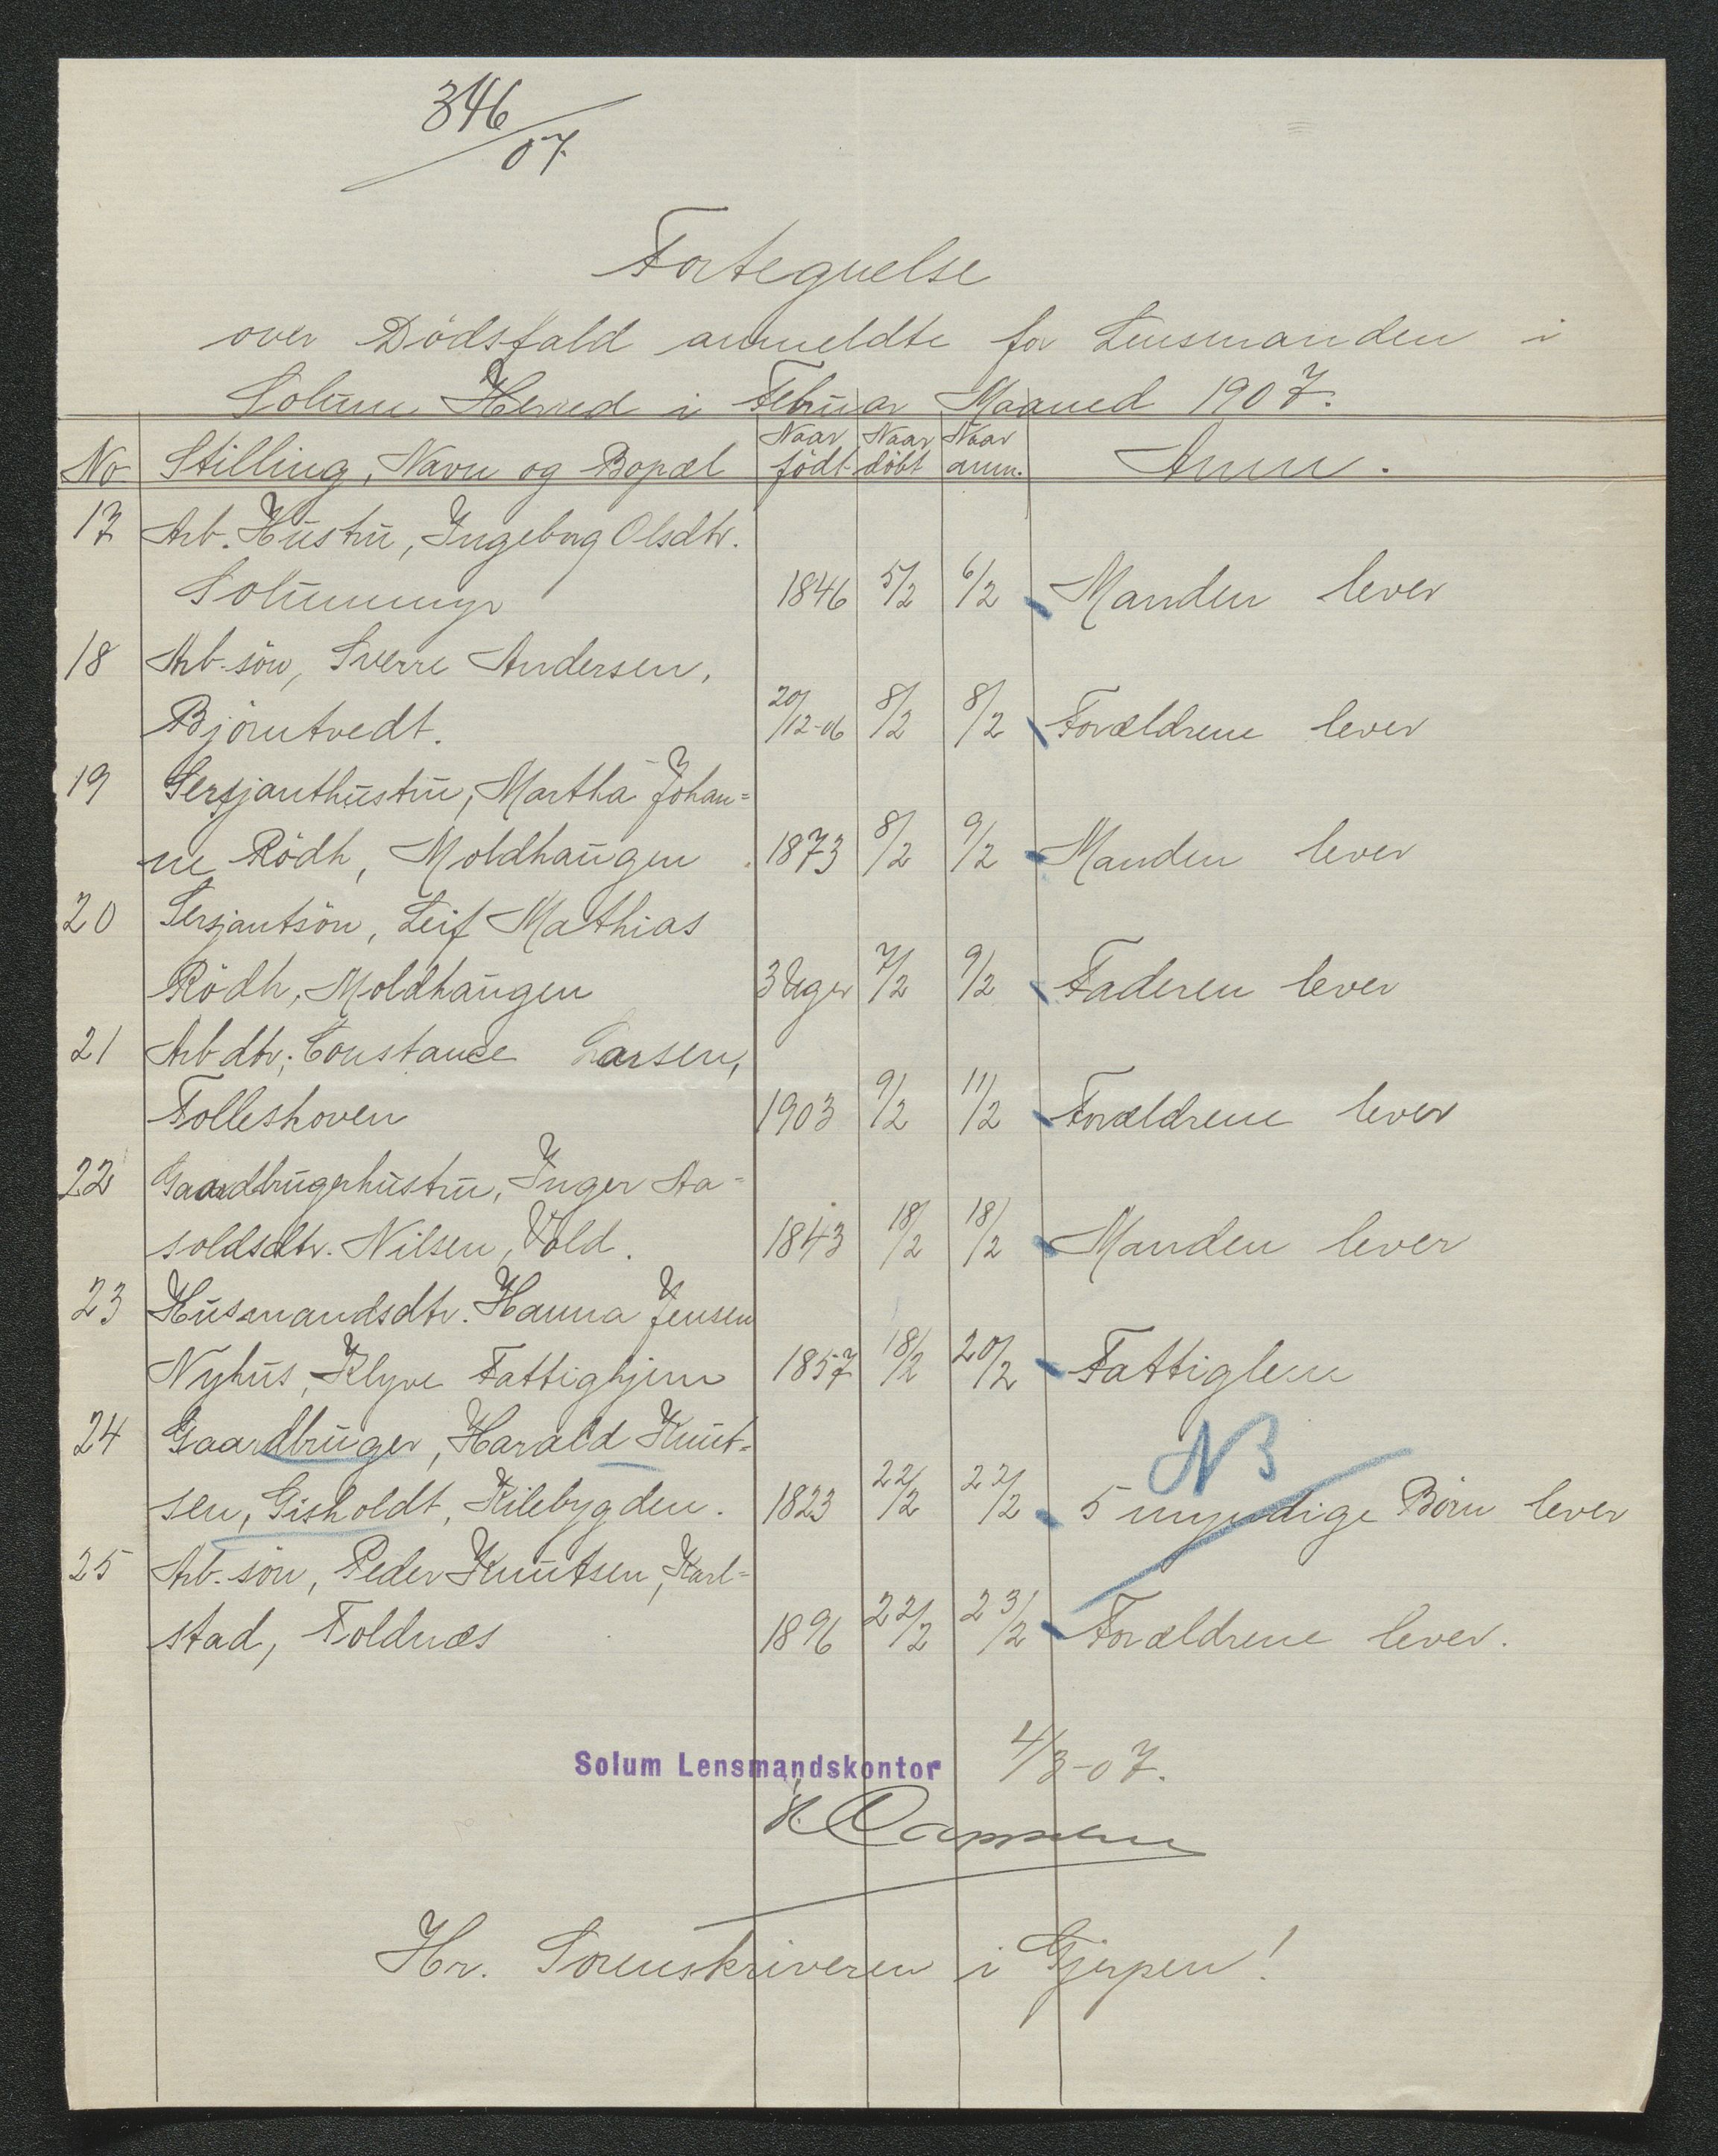 346/07
Fortegnelse
over Dödsfald anmeldte for Lensmanden i
Solum Herred i Februar Maaned 1907.
No Stilling, Navn og Bopæl Naar födt Naar döbt Naar anm. Anm.
17 Arb. Hustru, Ingeborg Olsdtr.
Solummyr 1846 5/2 6/2 Manden lever
18 Arb. sön, Sverre Andersen,
Björntvedt. 20/12-06 8/2 8/2 Forældrene lever
19 Sersjanthustru, Martha Johan=
ne Rödh, Moldhaugen 1873 8/2 9/2 Manden lever
20 Sersjantsön, Leif Mathias
Rödh, Moldhaugen 3 Uger 7/2 9/2 Faderen lever
21 Arb dtr. Constance Larsen,
Folleshoven 1903 9/2 11/2 Forældrene lever
22 Gaardbrugerhustru, Inger Aa=
soldsdtr. Nilsen, Vold. 1843 18/2 18/2 Manden lever
23 Husmandsdtr. Hanna Jensen
Nyhus, Klyve Fattighjem 1857 18/2 20/2 Fattiglem
NB
24 Gaardbruger, Harald Knut=
sen, Gisholdt, Kilebygden. 1823 22/2 22/2 5 myndige Börn lever
25 Arb. sön, Peder Knutsen, Karl=
stad, Foldnæs 1896 22/2 23/2 Forældrene lever.
Solum Lensmandskontor 4/3-07.
Hr. Sorenskriveren i Gjerpen!